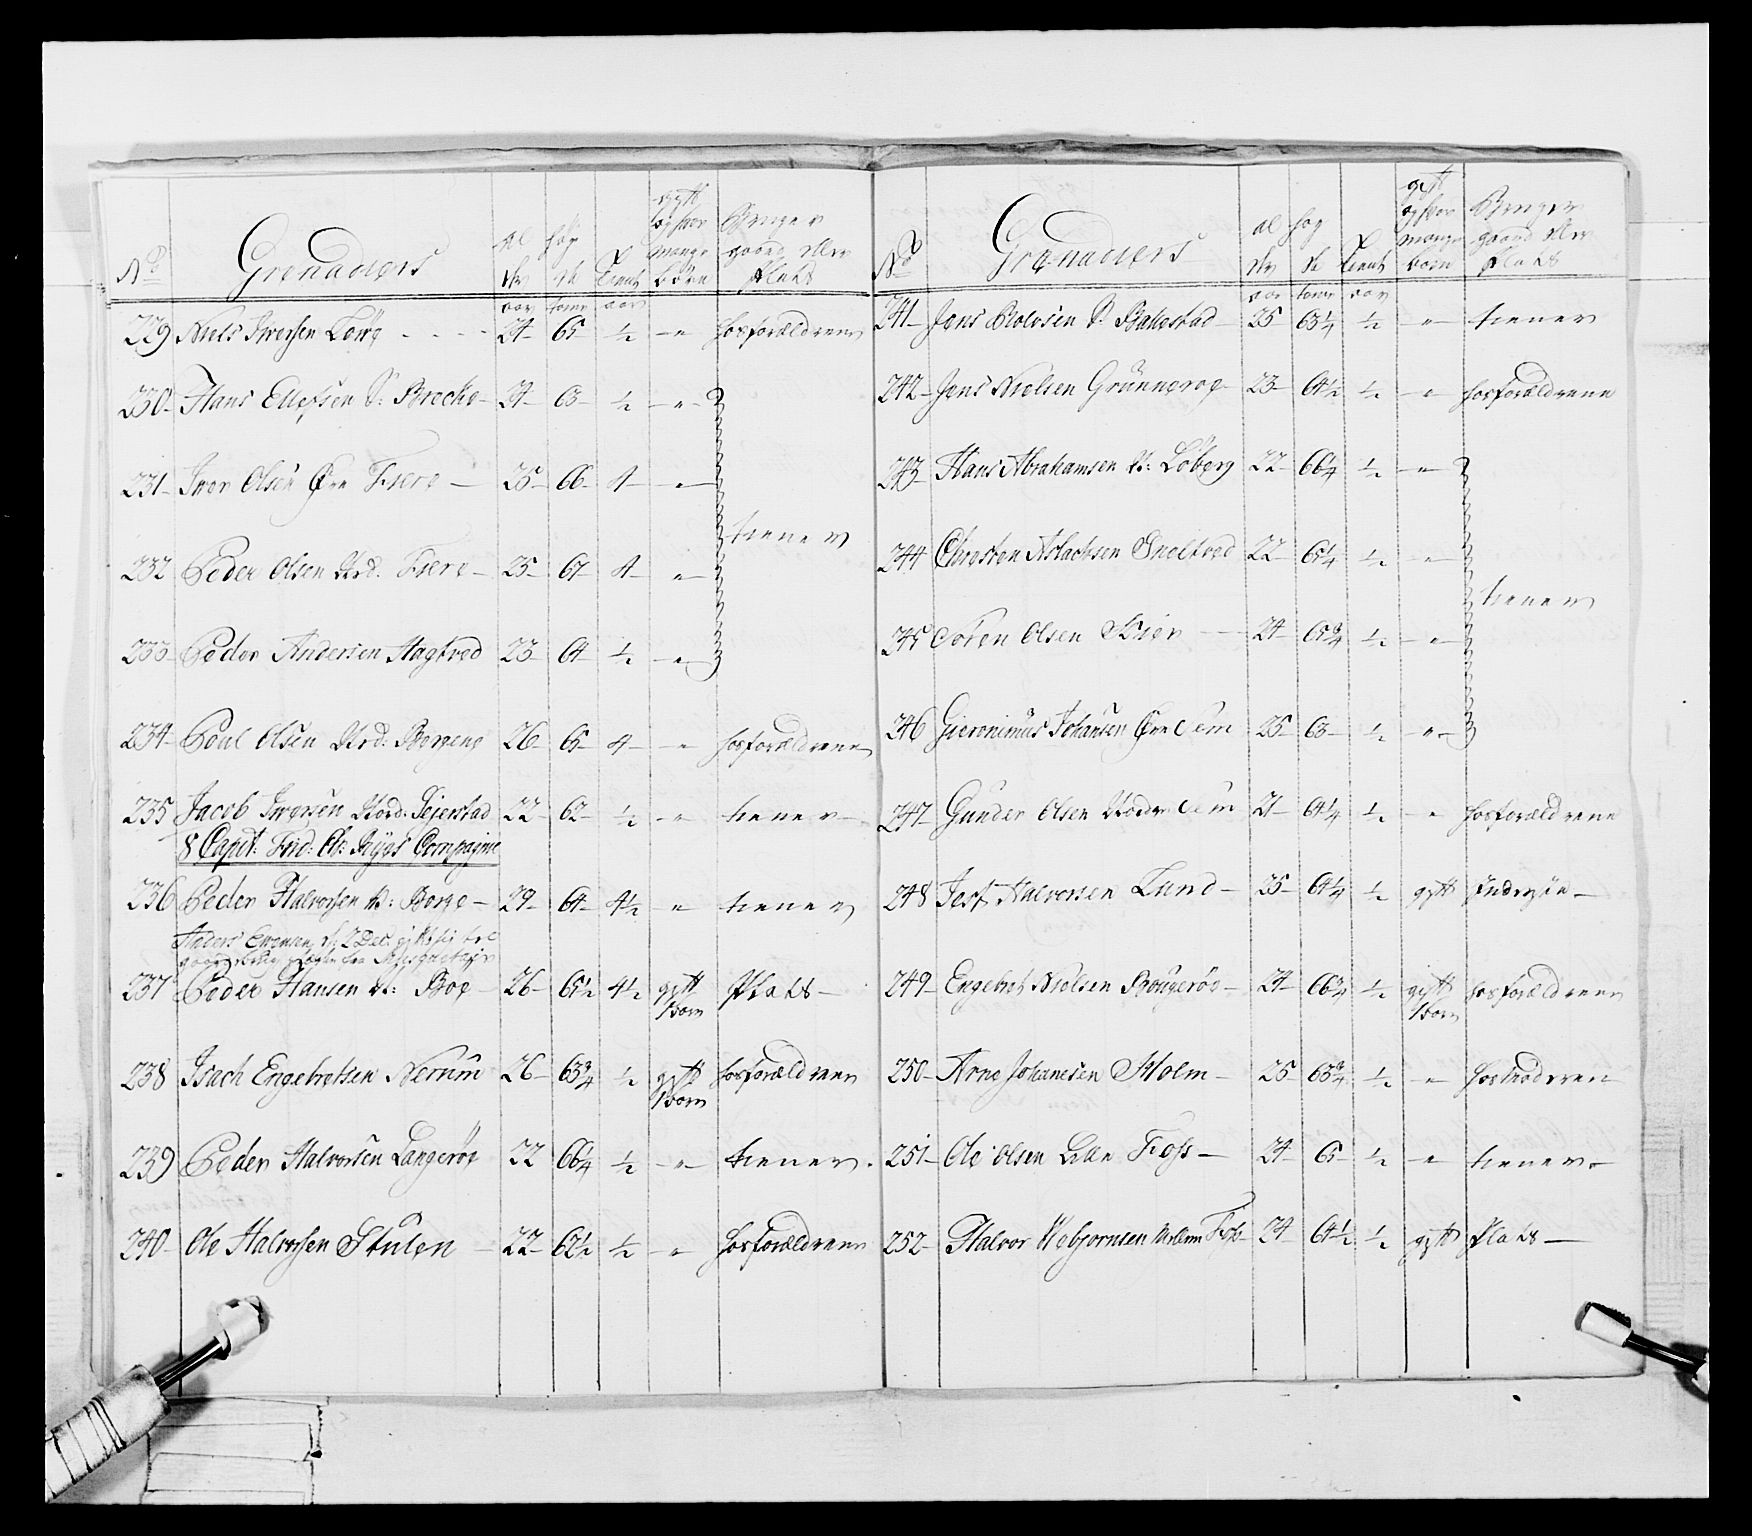 No Grenadiers al der hög de Tient gyft og hvor mange börn Bruger gaard eller Plads
aar tomr aar
229 Niels Iversen Löwe 24 65 1/2 " hos forældrene
230 Hans Ellefsen S: Brecke 24 63 1/2 "
231 Iver Olsen Øvre Fiere 25 66 4 "
tiener
232 Peder Olsen Nrd. Fiere 25 67 4 "
233 Peder Andersen Hagtved 23 64 1/2 "
234 Poul Olsen Nrd: Borgene 26 65 4 " hos forældrene
235 Jacob Iversen Nord: Sejerstad 22 62 1/2 " tiener
8 Capit: Ferd: Ch: Ryes Compagnie
236 Peder Halvorsen N: Borge 29 64 4 1/2 " tiener
237 Peder Hansen N: Boe 26 65 1/2 4 1/2 gyft 1 barn Plads
238 Isach Engebretsen Nerum 26 63 3/4 1/2 gyft 1 barn hos forældrene
239 Peder Halvorsen Langeröe 22 66 1/4 1/2 " tiener
240 Ole Halvorsen Stulen 22 62 1/2 1/2 " hos forældrene
No Grenadiers al der hög de Tient gyft og hvor mange börn Bruger gaard eller Plads
aar tomr aar
241 Jens Rolvsen S: Bakestad 25 63 1/4 1/2 " tiener
242 Jens Nielsen Grünneroe 23 64 1/2 1/2 " hos forældrene
243 Hans Abrahamsen N: Löberg 22 66 1/4 1/2 "
244 Christen Aslachsen Sneltved 22 65 1/4 1/2 "
tiener
245 Sören Olsen Skier 24 65 3/4 1/2 "
246 Gieronimus Johansen Øvre Sem 25 63 1/2 "
247 Gunder Olsen Nordre Sem 21 64 1/4 1/2 " hos forældrene
248 Jess Halvorsen Lund 25 64 1/4 1/2 gyft
249 Engebret Nielsen Rougeröe 24 66 3/4 1/2 gyft 1 barn hos forældrene
250 Arne Johanesen Holm 25 63 3/4 1/2 "
251 Ole Olsen Lille Foss 24 65 1/2 " tiener
252 Halvor Webjornsen Foss 24 64 1/2 1/2 gyft Plads